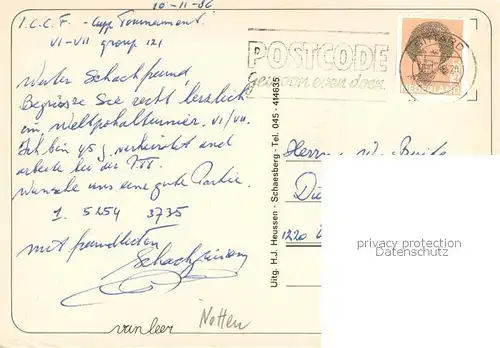 10-11-86
I.C.C.F. - Cupp Tournament
VI-VII group 121
Werter Schachfreund
Begrüsse Sie recht herzlich
im Weltpokalturnier. VI/VII.
Ich bin 45 j. verheiratet und
arbeite bei der PTT.
Wünsche uns eine gute Partie.
1. 5254 3735
mit freundlichen
Schachgrüssen
van Leer Notten
Uitg. H.J. Heussen - Schaesberg - Tel. 045 - 414635
POSTCODE
gewoon even doen
NEDERLAND
Herrn W.
1220
privacy protection
Datenschutz